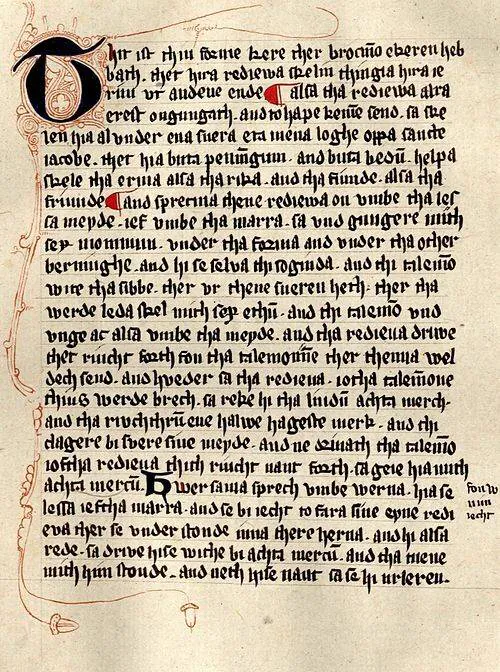 Thit ist thiu forme kere ther brocmo ekeren heb
bath. thet hira rediewa skelin thingia hira ie
rim ut and eue ende alsa tha rediewa alra
erest ongungath. and to hape keme send. sa ske
len hia al under ena suera eta mena loghe oppa sancte
iacobe. thet hia buta penningum. and buta bedum. helpa
skele tha erma alsa tha rika. and tha fiunde. alsa tha
friunde and sprecma thene rediewa on umbe tha les
sa meyde. ief umbe tha marra. sa und gungere mith
sex monnum. under tha forma and under tha other
bermughe. and hi se selva thi soginda. and thi talemo
wite tha sibbe. ther ur thene sueren heth. ther tha
werde leda skel mith sex ethum. and thi talemo und
unge ac alsa umbe tha meyde. and tha redieva driwe
thet riucht forth fon tha talemonne ther thenna wel
dech send. and hveder sa tha redieva. ioftha talemonne
thius werde brech. sa reke hi tha liudum achta merch.
and tha riuchtherum ene halwe hageste merk. and thi
clagere bi svere sine meyde. and ne driuath tha talemo
ioftha redieua thich riucht naut forth. sa geie hia mith
achta mercum. Hwersama sprech umbe werna. hia se
lessa ieftha marra. and se bi iecht to fara sine eyne redi
eva ther se under stonde inna there herna. and hi alsa
rede. sa drive hise withe bi achta mercum. and tha mene
mith him stonde. and neth hise naut sa se hi urleren.
fon w
nun
iecht